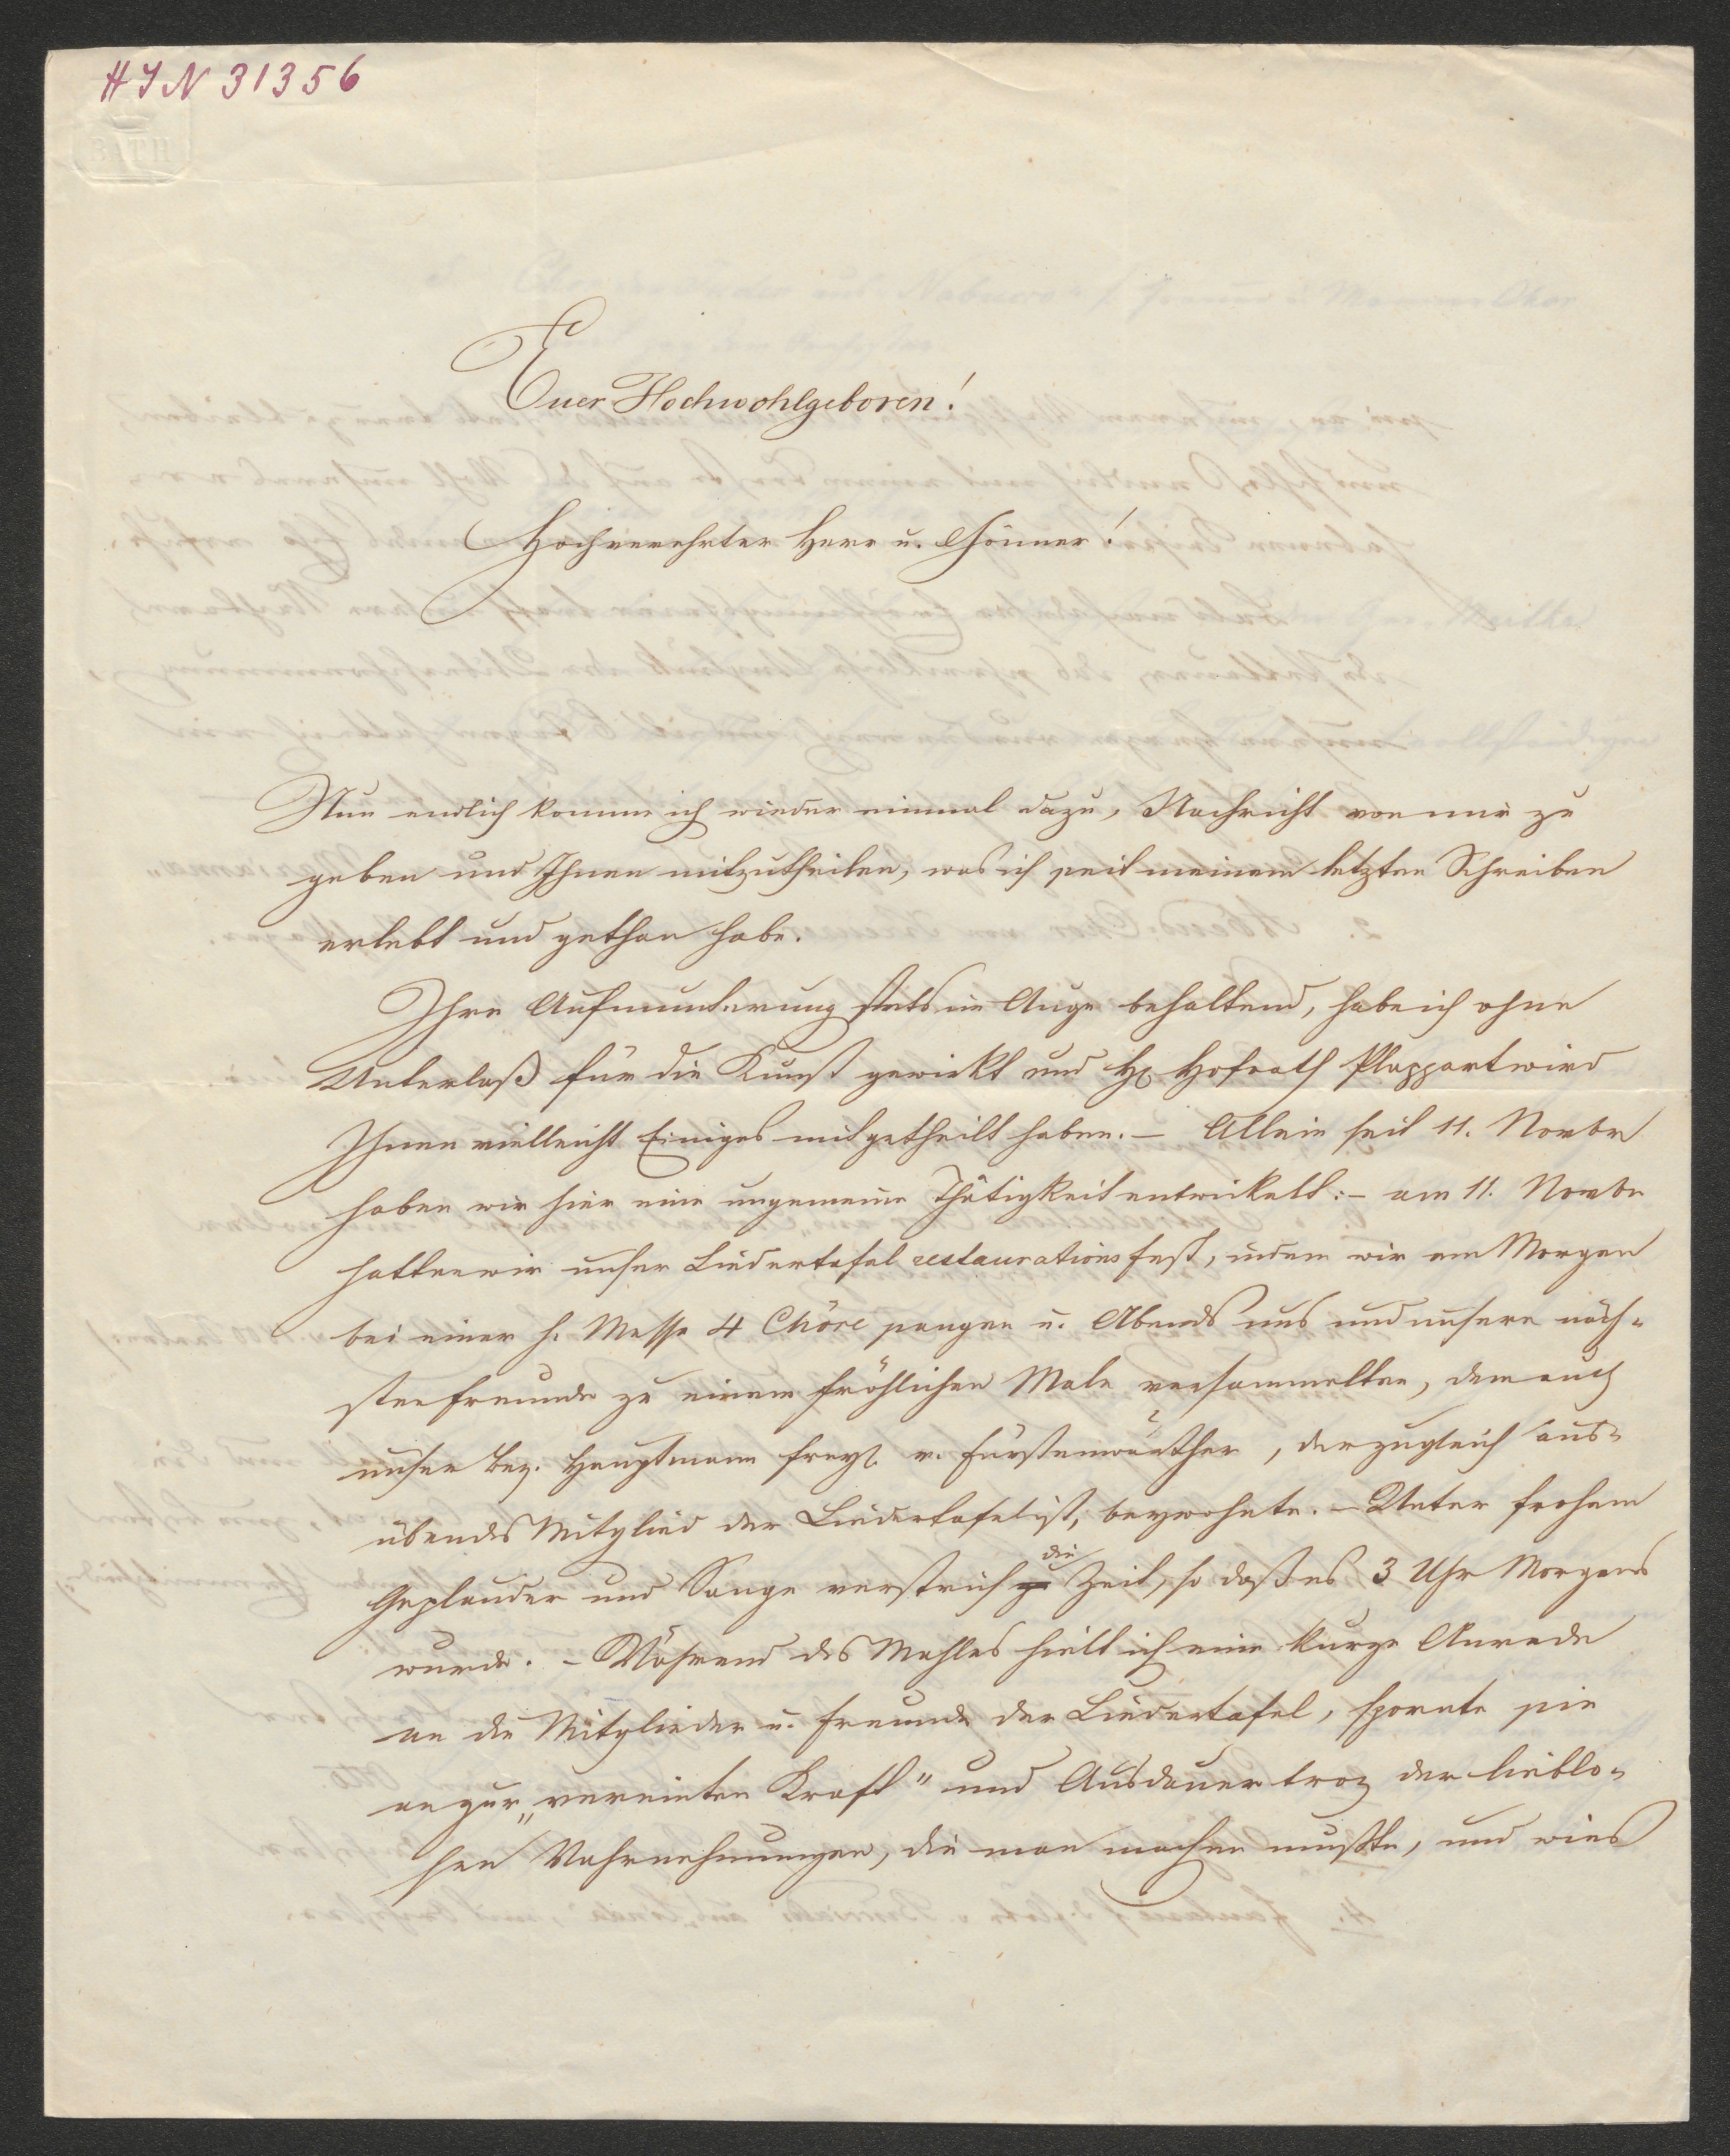 HIN 31356
BATH
Euer Hochwohlgeboren!
Hochverehrter Herr u. Gönner!
Nun endlich komme ich wieder einmal dazu, Nachricht von mir zu
geben und Ihnen mitzutheilen, was ich seit meinem letzten Schreiben
erlebt und gethan habe.
Ihre Aufmunterung stets im Auge behaltend, habe ich ohne
Unterlaß für die Kunst gewirkt und H. Hofrath Plappart wird
Ihnen vielleicht Einiges mitgetheilt haben. – Allein seit 11. Novbr
haben wir hier eine ungemeine Thätigkeit entwickelt: – am 11. Novbr
hatten wir unser Liedertafel restaurationsfest, indem wir am Morgen
bei einer h. Messe 4 Chöre sangen u. Abends uns und unsere näch-
sten Freunde zu einem fröhlichen Male versammelten, dem auch
unser Bez. Hauptmann Freyh. v. Fürstenwärther, der zugleich aus-
übendes Mitglied der Liedertafel ist, beywohnte. – Unter frohem
Geplauder und Sange verstrich die Zeit, so daß es 3 Uhr Morgens
wurde. – Während des Mahles hielt ich eine kurze Anrede
an die Mitglieder u. Freunde der Liedertafel, spornte sie
an zur „vereinten Kraft" und Ausdauer troz der lieblo-
sen Wahrnehmungen, die man machen mußte, und wies